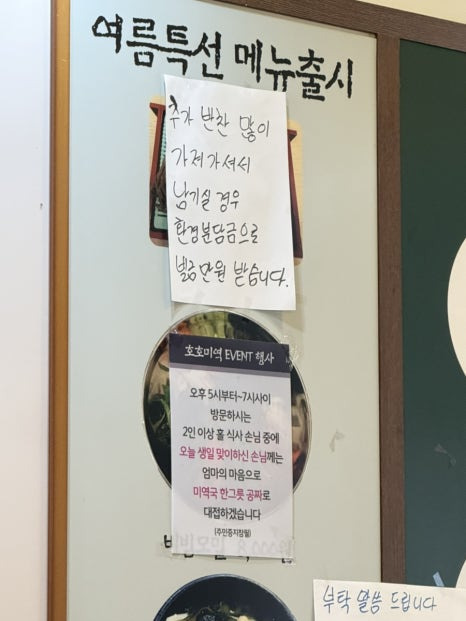 여름특선 메뉴출시
추가 반찬 많이
가져가셔서
남기실 경우
환경분담금으로
벌금만원 받습니다.
호호미역 EVENT 행사
오후 5시부터~7시사이
방문하시는
2인 이상 홀 식사 손님 중에
오늘 생일 맞이하신 손님께는
엄마의 마음으로
미역국 한그릇 공짜로
대접하겠습니다
(주민증지참필)
부탁 말씀 드립니다